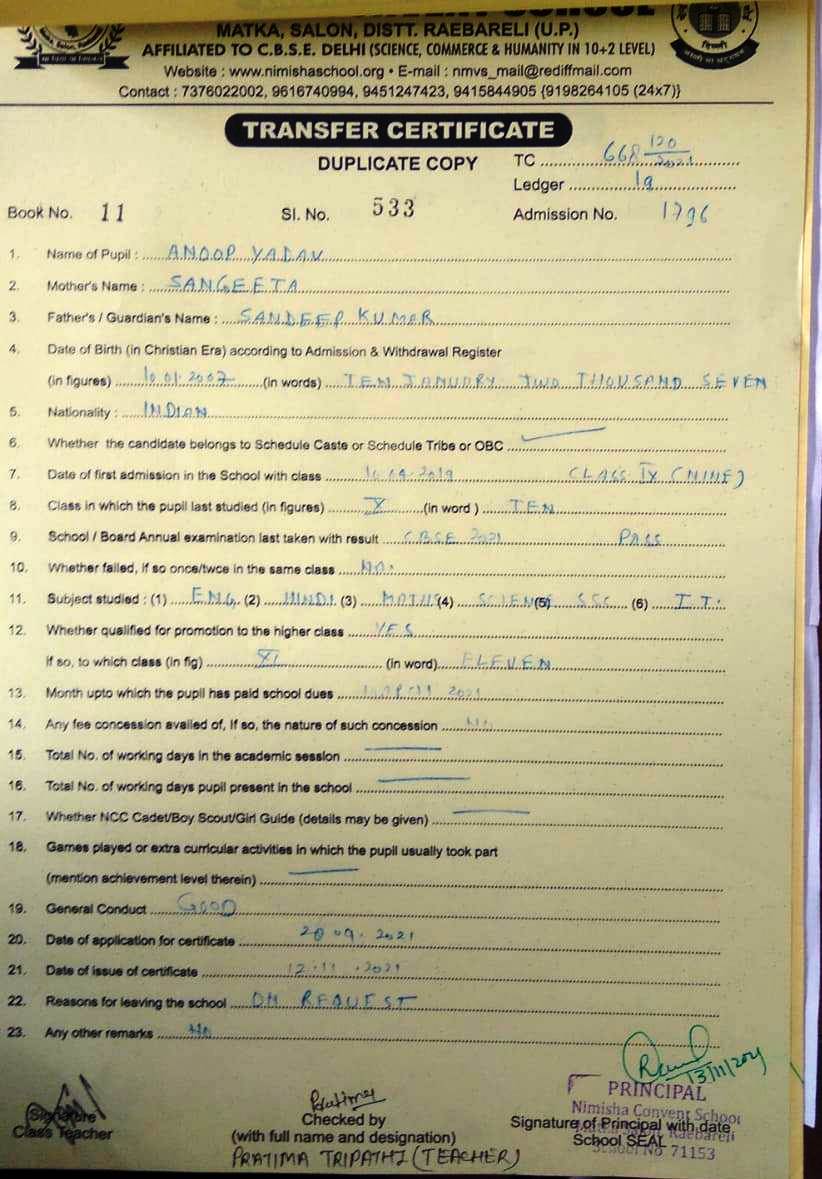 MATKA, SALON, DISTT. RAEBARELI (U.P.)
AFFILIATED TO C.B.S.E. DELHI (SCIENCE, COMMERCE & HUMANITY IN 10+2 LEVEL)
Website : www.nimishaschool.org • E-mail : nmvs_mail@rediffmail.com
Contact : 7376022002, 9616740994, 9451247423, 9415844905 {9198264105 (24x7)}
TRANSFER CERTIFICATE
DUPLICATE COPY TC 668 120/2021
Ledger 19
Book No. 11 Sl. No. 533 Admission No. 1796
1. Name of Pupil : ANOOP YADAV
2. Mother's Name : SANGEETA
3. Father's / Guardian's Name : SANDEEP KUMAR
4. Date of Birth (in Christian Era) according to Admission & Withdrawal Register
(in figures) 10.01.2007 (in words) TEN JANUARY TWO THOUSAND SEVEN
5. Nationality : INDIAN
6. Whether the candidate belongs to Schedule Caste or Schedule Tribe or OBC
7. Date of first admission in the School with class 10.04.2019 CLASS IX (NINE)
8. Class in which the pupil last studied (in figures) X (in word ) TEN
9. School / Board Annual examination last taken with result CBSE 2021 PASS
10. Whether failed, if so once/twce in the same class NO.
11. Subject studied : (1) ENG. (2) HINDI (3) MATHS (4) SCIENCE (5) SSC (6) I.T.
12. Whether qualified for promotion to the higher class YES
if so, to which class (in fig) XI (in word) ELEVEN
13. Month upto which the pupil has paid school dues MARCH 2021
14. Any fee concession availed of, If so, the nature of such concession NO
15. Total No. of working days in the academic session
16. Total No. of working days pupil present in the school
17. Whether NCC Cadet/Boy Scout/Girl Guide (details may be given)
18. Games played or extra curricular activities in which the pupil usually took part
(mention achievement level therein)
19. General Conduct GOOD
20. Date of application for certificate 20.09.2021
21. Date of issue of certificate 12.11.2021
22. Reasons for leaving the school ON REQUEST
23. Any other remarks NO
13/11/2021
PRINCIPAL
Nimisha Convent School
Raebareli
School No 71153
Signature
Class Teacher
Pratima
Checked by
(with full name and designation)
PRATIMA TRIPATHI (TEACHER)
Signature of Principal with date
School SEAL